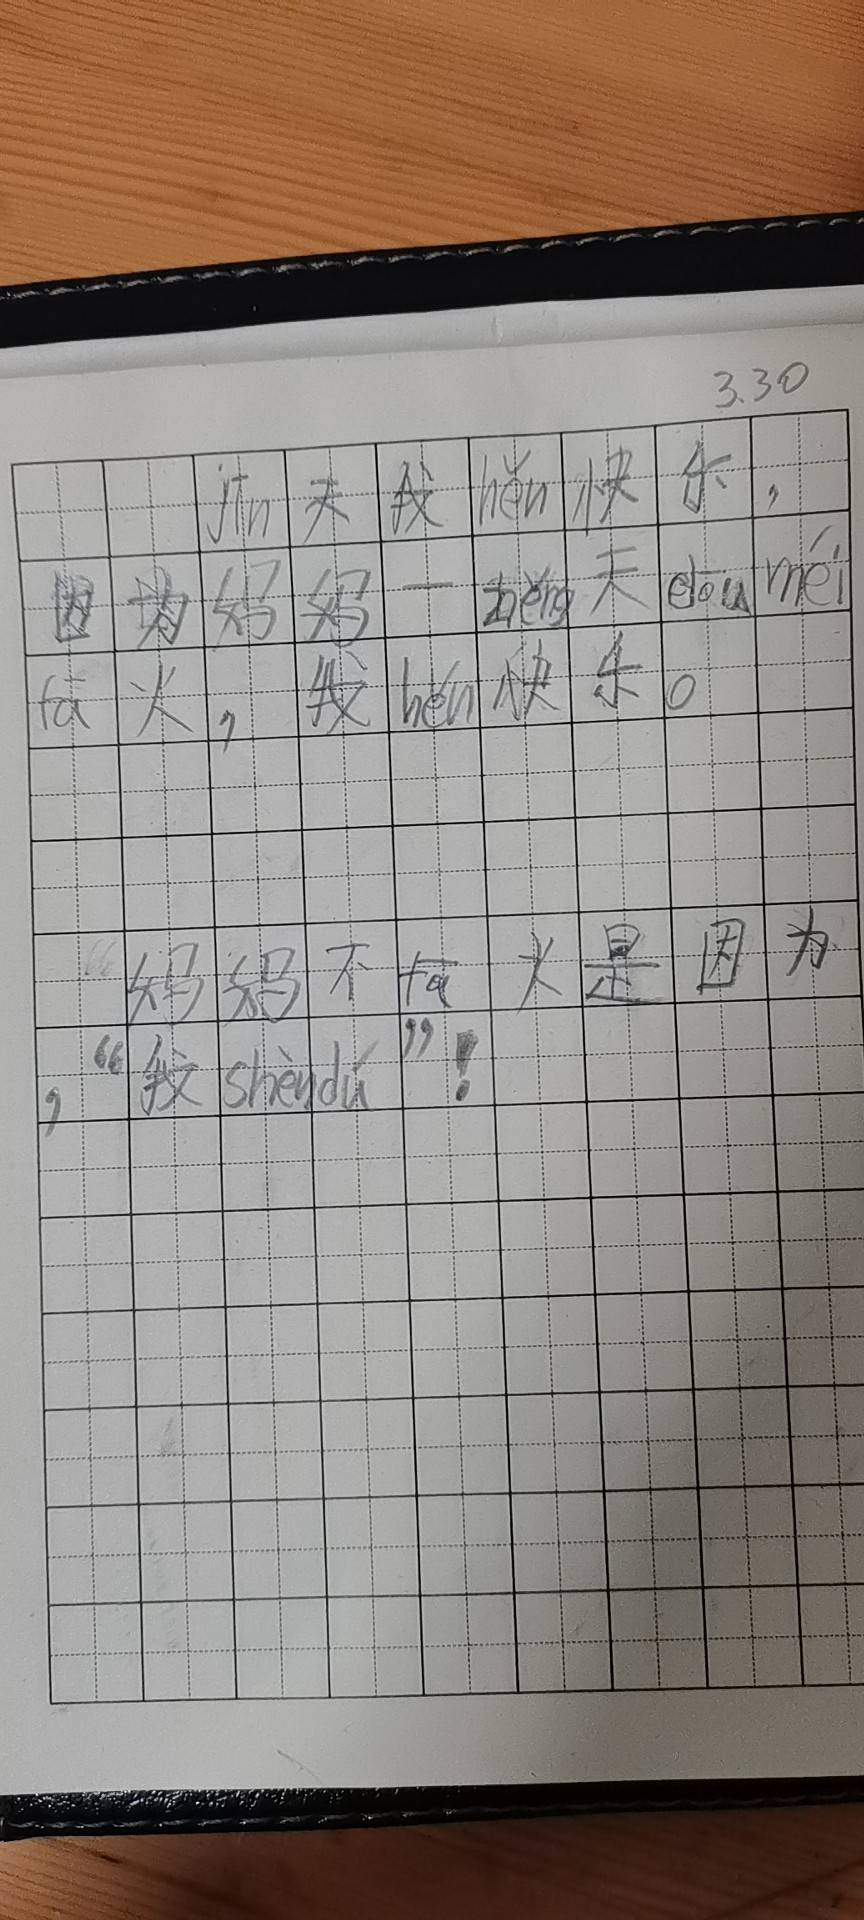 3.30
jīn天我hěn快乐，
因为妈妈一zhěng天dōu méi
fā火，我hěn快乐。
“妈妈不fā火是因为
，“我shèndú”！